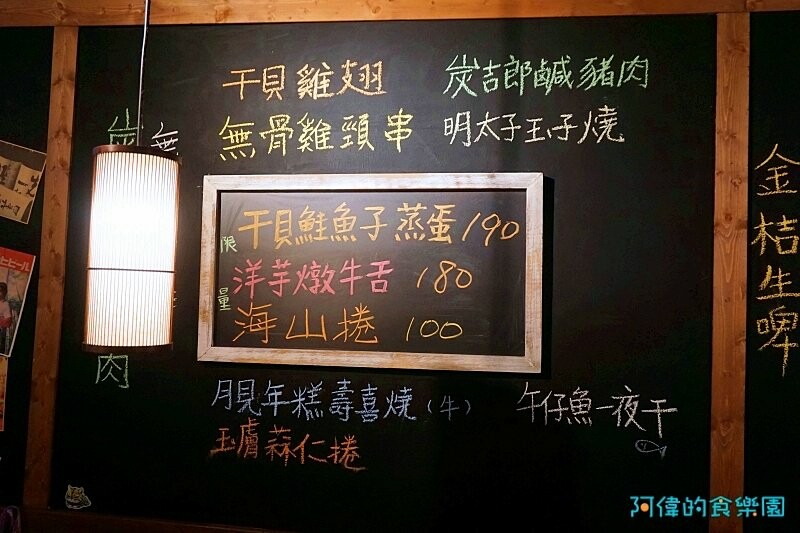 干貝雞翅
炭吉郎鹹豬肉
無骨雞頸串
明太子玉子燒
限量
干貝鮭魚子蒸蛋190
洋芋燉牛舌 180
海山捲 100
月見年糕壽喜燒(牛)
午仔魚一夜干
玉膚蒜仁捲
炭
無
肉
金桔生啤
阿偉的食樂園